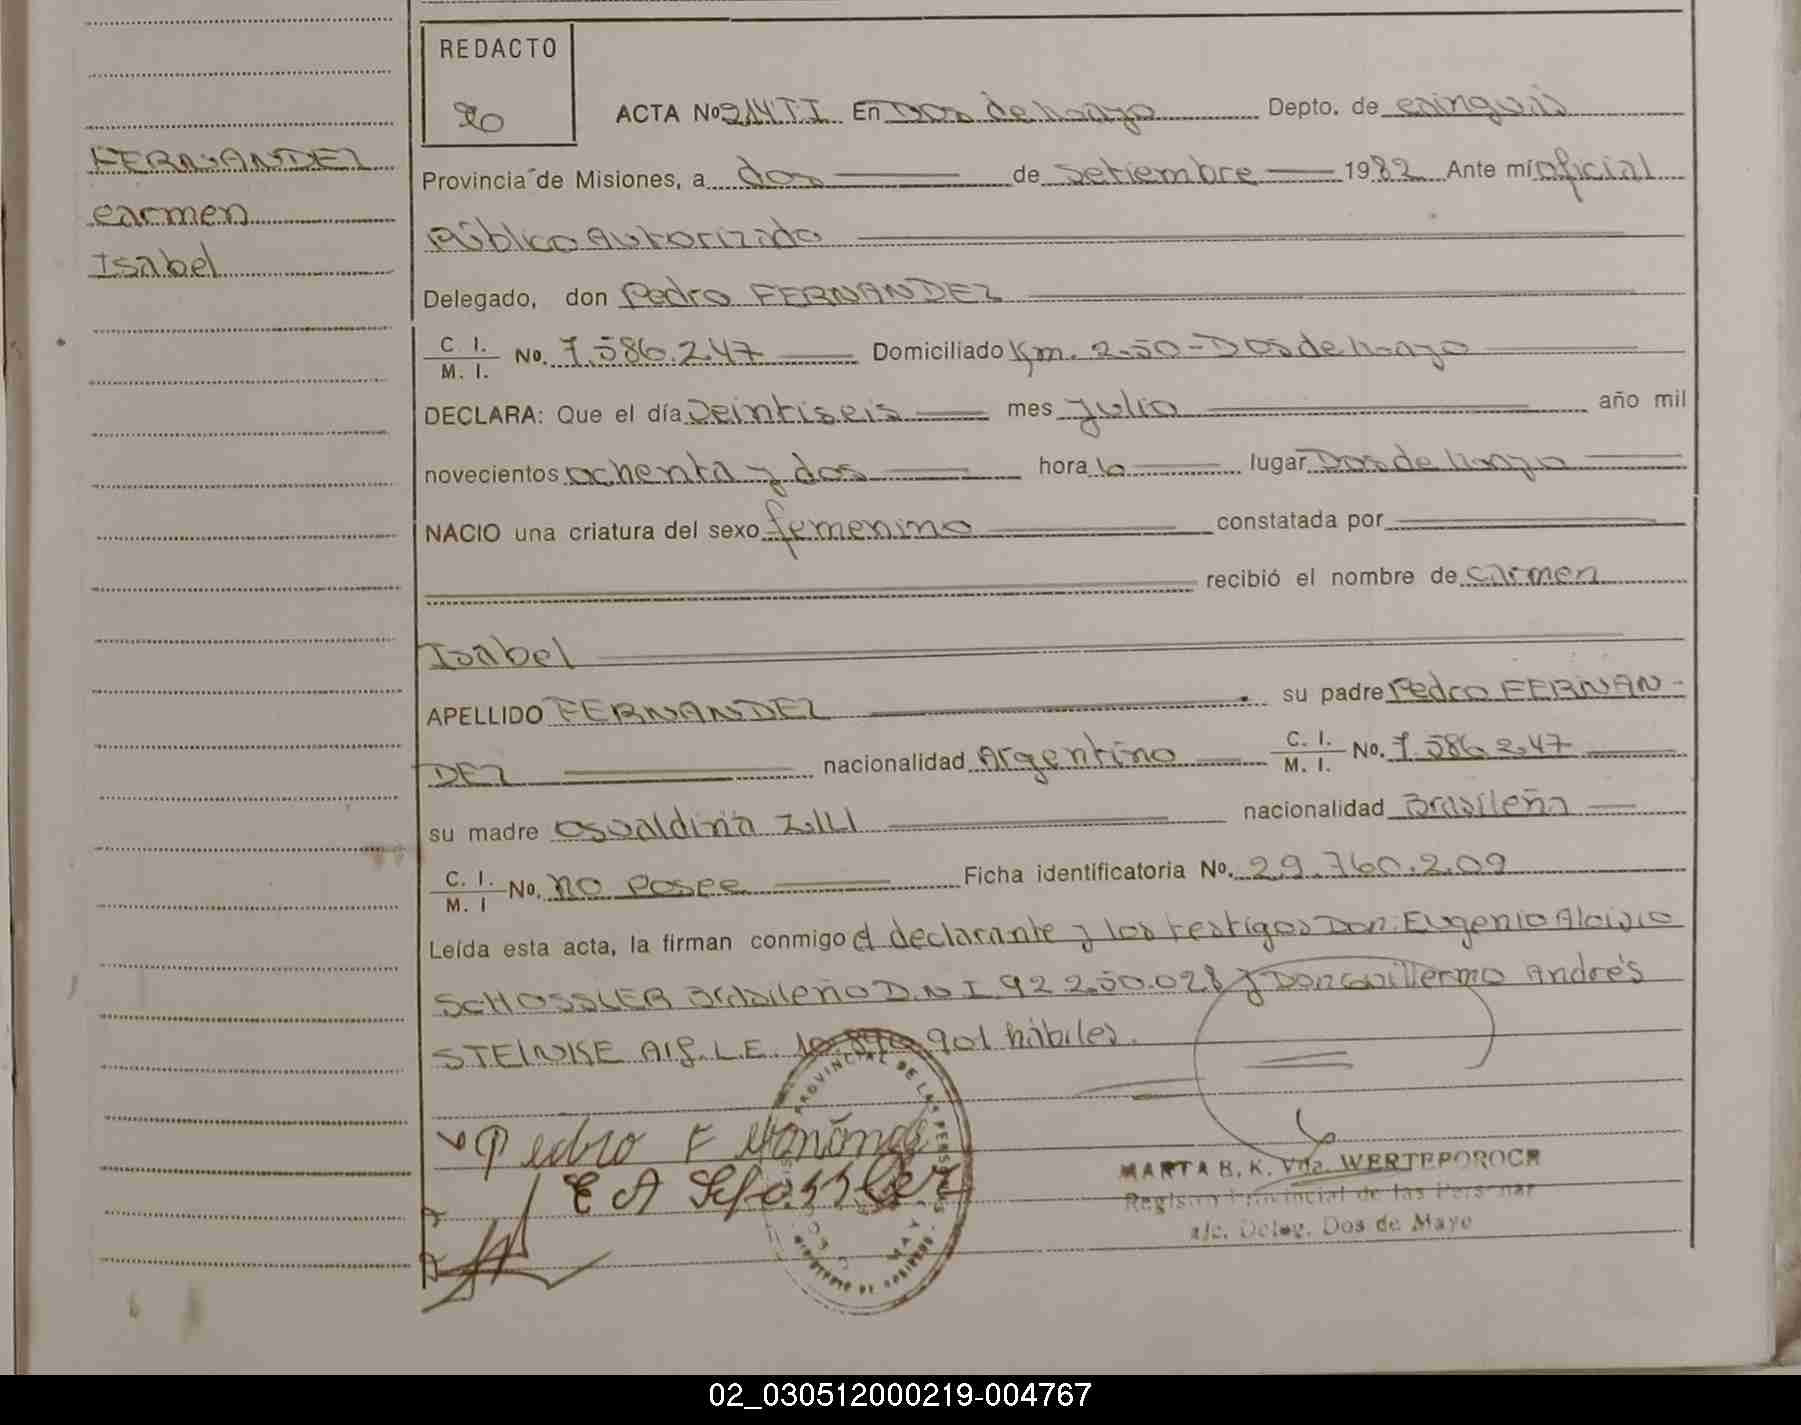 REDACTO
20
FERNANDEZ
Carmen
Isabel
ACTA No 214 TI En Dos de Mayo Depto. de Cainguás
Provincia de Misiones, a dos de Setiembre 1982 Ante mi oficial
Público Autorizado
Delegado, don Pedro FERNANDEZ
C. I. M. I. No. 7.586.247 Domiciliado Km. 250 - Dos de Mayo
DECLARA: Que el día Veintiseis mes Julio año mil
novecientos ochenta y dos hora lugar Dos de Mayo
NACIO una criatura del sexo femenino constatada por
recibió el nombre de Carmen
Isabel
APELLIDO FERNANDEZ su padre Pedro FERNAN-
DEZ nacionalidad Argentino C. I. M. I. No. 7.586.247
su madre Osvaldina nacionalidad Brasileña
C. I. M. I No. no posee Ficha identificatoria No. 29.760.209
Leída esta acta, la firman conmigo el declarante y los testigos Don. Eugenio Aloisio
SCHOSSLER Brasileño D.N.I. 92 250.028 y Don Guillermo Andrés
STEINKE Arg. L.E. 901 hábiles.
Pedro F
E A Schossler
PROVINCIAL DE LAS PERSONAS
MARTA B. K. Vda. WERTEPOROCH
Registro Provincial de las Personas
a/c. Deleg. Dos de Mayo
02_030512000219-004767